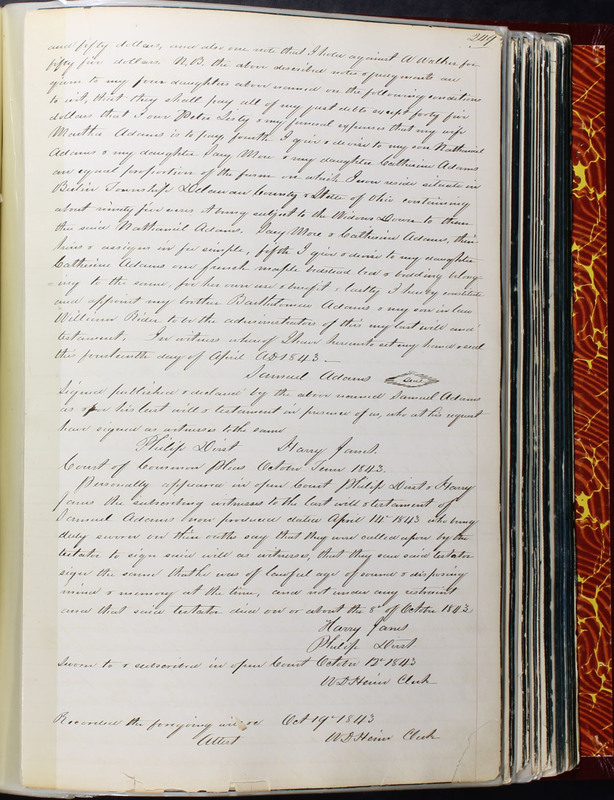 249
and fifty dollars, and also one note that I hold against A Walker for
fifty five dollars N.B. the above described notes & judgments are
given to my four daughters above named on the following conditions
to wit, that they shall pay all of my just debts except forty five
dollars that I owe Peter & my funeral expenses that my wife
Martha Adams is to pay, fourth I give & devise to my son Nathaniel
Adams & my daughter Jay More & my daughter Catherine Adams
an equal proportion of the farm on which I now reside situate in
Berlin Township Delaware County & State of Ohio containing
about ninety five acres it being subject to the Widows Dower to them
the said Nathaniel Adams, Jay More & Catherine Adams, their
heirs & assigns in fee simple, fifth I give & devise to my daughter
Catherine Adams one french maple bedstead bed & bedding belong-
-ing to the same, for her own use & benefit & lastly I hereby constitute
and appoint my brother Bartholomew Adams & my son in law
William Rider to be the administrators of this my last will and
testament, In witness whereof I have hereunto set my hand & seal
this fourteenth day of April AD 1843 —
Samuel Adams Seal
Signed published & declared by the above named Samuel Adams
as & for his last will & testament in presence of us, who at his request
have signed as witnesses to the same
Philip Dirst Harry Janes
Court of Common Pleas October Term 1843.
Personally appeared in open Court Philip Dirst & Harry
Janes the subscribing witnesses to the last will & testament of
Samuel Adams now produced dated April 14th 1843 who being
duly sworn on their oaths say that they were called upon by the
testator to sign said will as witnesses, that they saw said testator
sign the same that he was of lawful age of sound & disposing
mind & memory at the time, and not under any restraint
and that said testator died on or about the 8th of October 1843.
Harry Janes
Philip Dirst
Sworn to & subscribed in open Court October 12th 1843
W D Heim Clerk
Recorded the foregoing will Oct 19th 1843
Attest W D Heim Clerk